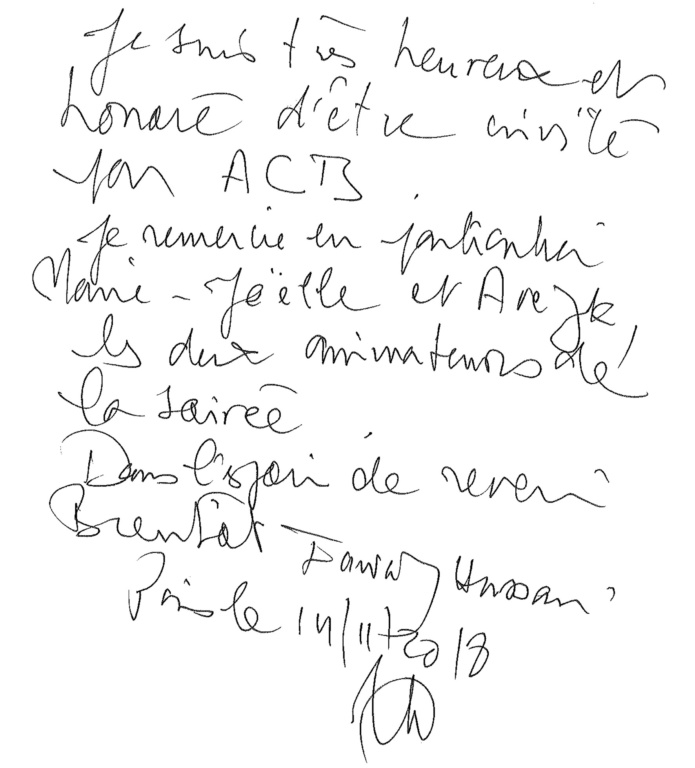 Je suis très heureux et
honoré d'être invité
par ACTB
Je remercie en particulier
Marie-Joëlle et Arezki
les deux animateurs de
la soirée
Dans l'espoir de revenir
Bientôt
Paris le 14/11/2018